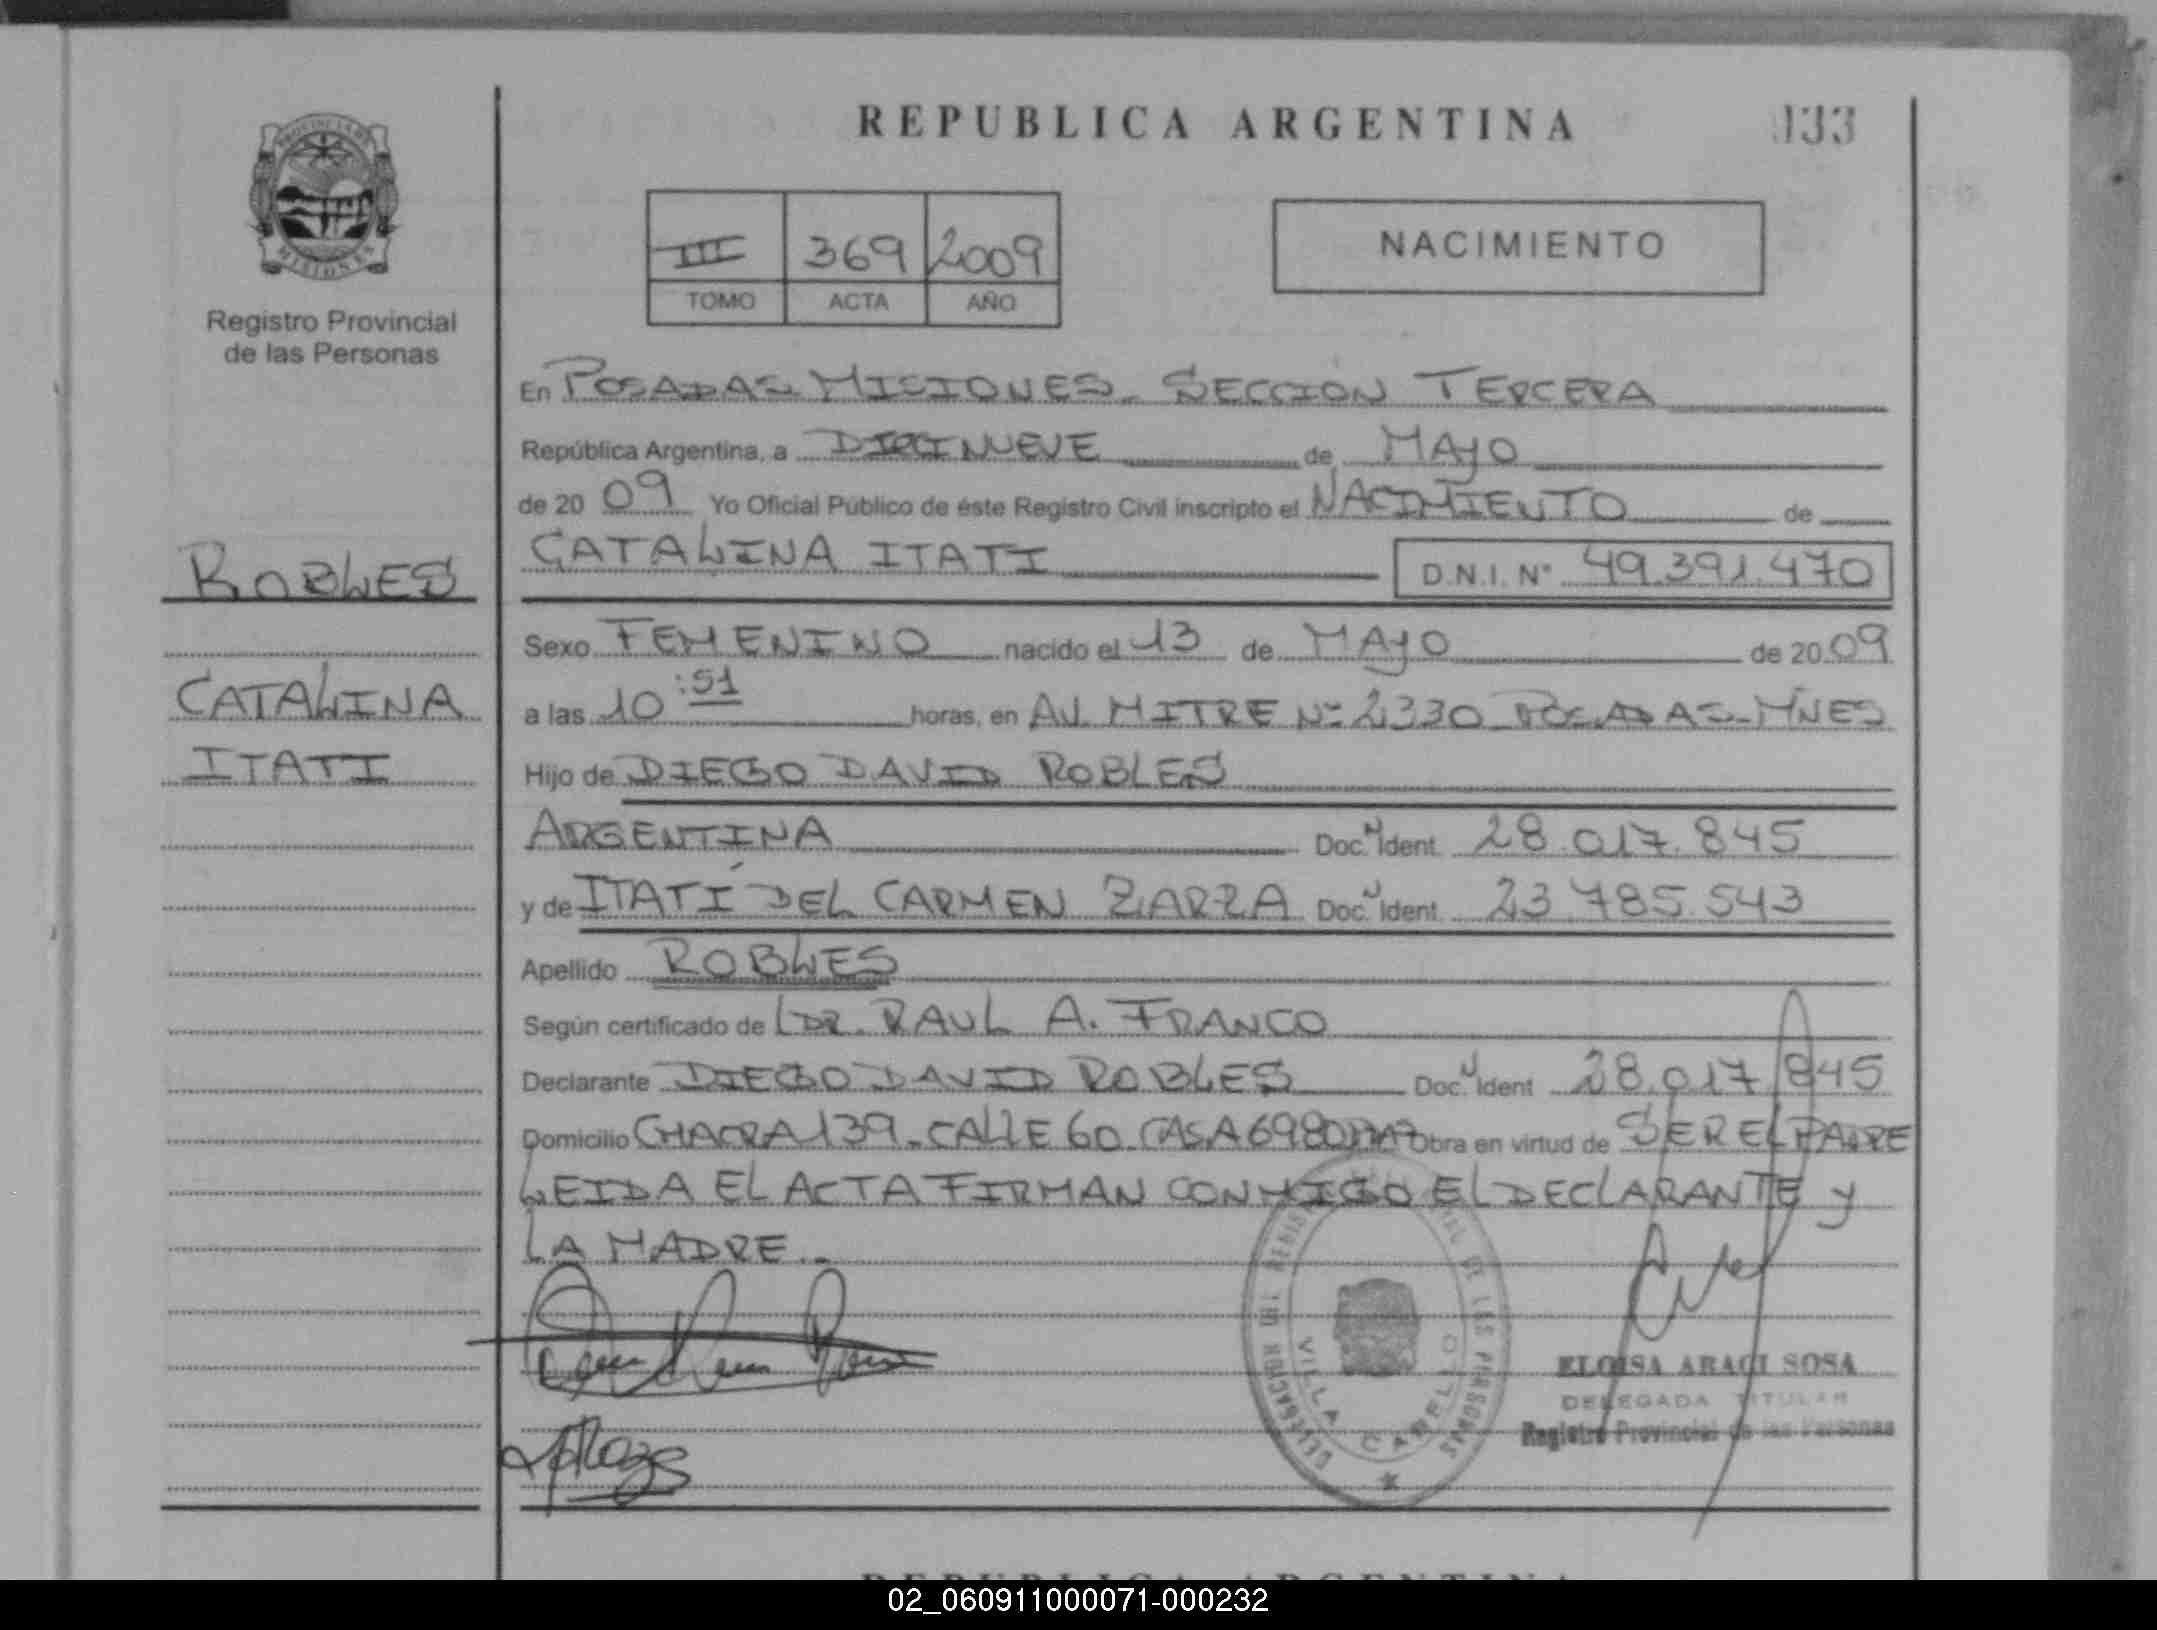 REPUBLICA ARGENTINA
133
PROVINCIA DE
MISIONES
Registro Provincial
de las Personas
III 369 2009
TOMO ACTA AÑO
NACIMIENTO
En POSADAS MISIONES - SECCION TERCERA
República Argentina, a DIECINUEVE de MAYO
de 20 09 Yo Oficial Público de éste Registro Civil inscripto el NACIMIENTO de
CATALINA ITATI D.N.I. N° 49.391.470
ROBLES
CATALINA
ITATI
Sexo FEMENINO nacido el 13 de MAYO de 20 09
a las 10:51 horas, en AV. MITRE Nº 2330 POSADAS - MNES
Hijo de DIEGO DAVID ROBLES
ARGENTINA Doc. N Ident. 28.017.845
y de ITATÍ DEL CARMEN ZARZA Doc. N Ident. 23.785.543
Apellido ROBLES
Según certificado de DR. RAUL A. FRANCO
Declarante DIEGO DAVID ROBLES Doc. N Ident. 28.017.845
Domicilio CHACRA 139 - CALLE 60 CASA 6980 Obra en virtud de SER EL PADRE
LEIDA EL ACTA FIRMAN CONMIGO EL DECLARANTE y
LA MADRE.-
DELEGACION DEL REGISTRO PROVINCIAL DE LAS PERSONAS
VILLA CABELLO
ELOISA ARACI SOSA
DELEGADA TITULAR
Registro Provincial de las Personas
REPUBLICA ARGENTINA
02_060911000071-000232